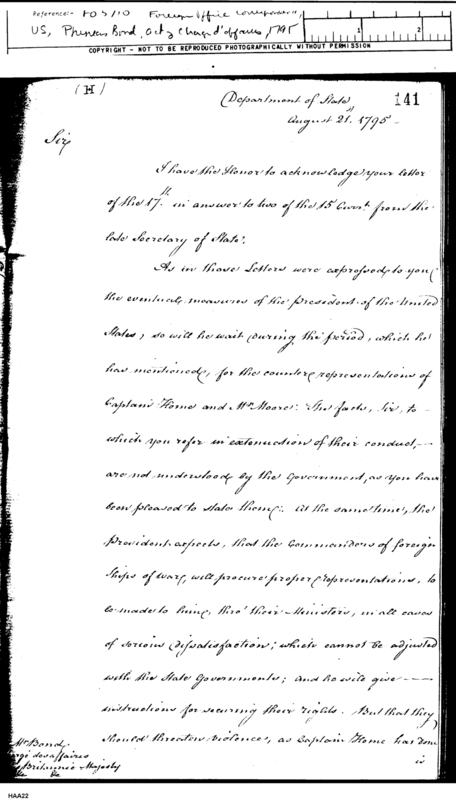 Reference:- FO 5/10 Foreign Office correspondence,
US, Phineas Bond, actg Chargé d'affaires, 1795
1 2
COPYRIGHT - NOT TO BE REPRODUCED PHOTOGRAPHICALLY WITHOUT PERMISSION
(H)
Department of State
141
August 21st. 1795 -
Sir,
I have the Honor to acknowledge your letter
of the 17th. in answer to two of the 15 Currt. from the
late Secretary of State.
As in those Letters were expressed to you
the eventual measures of the President of the United
States, so will he wait during the period, which he
has mentioned, for the counter representations of
Captain Home and Mr. Moore. The facts, Sir, to -
which you refer in extenuation of their conduct, -
are not understood by the Government, as you have
been pleased to state them. At the same time, the
President expects, that the Commanders of foreign
Ships of war, will procure proper representations, to
be made to him, thro' their Ministers, in all cases
of serious dissatisfaction; which cannot be adjusted
with the State Governments; and he will give -
instructions for securing their rights. But that they
should threaten violence, as Captain Home has done
is
Mr. Bond
des affaires
Britannic Majesty
&c
HAA22